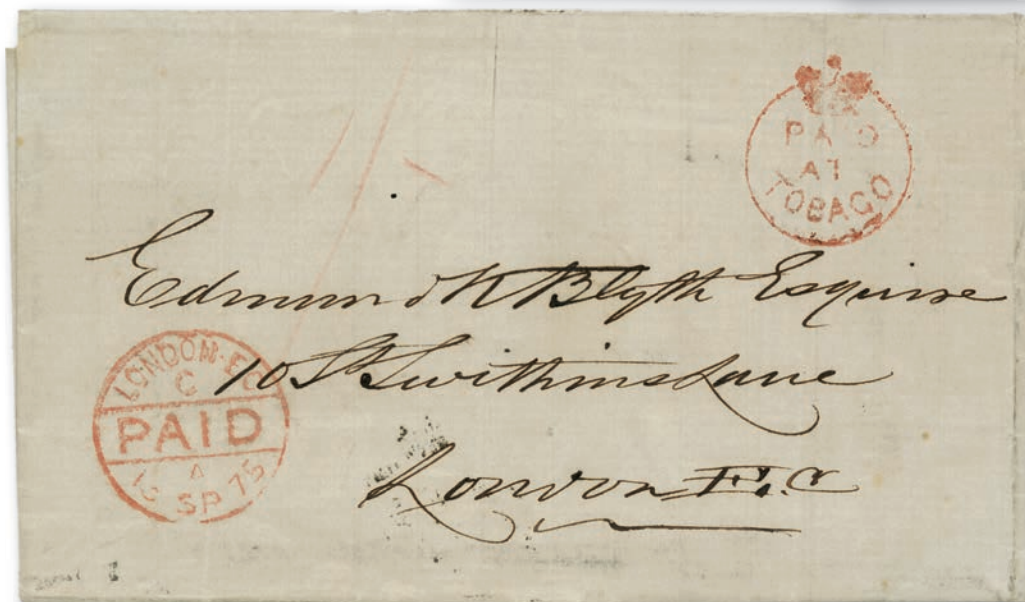 1/-
PAID
AT
TOBAGO
Edmund K Blyth Esquire
10 St Swithins Lane
London E.C
LONDON·EC
C
PAID
A
SP 75